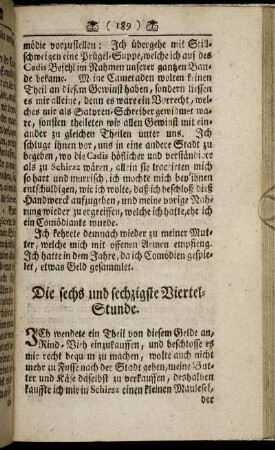 ( 189 )
mödie vorzustellen: Ich übergehe mit Still-
schweigen eine Prügel-Suppe, welche ich auf des
Cadis Befehl im Nahmen unserer gantzen Ban-
de bekame. Meine Cameraden wolten keinen
Theil an diesem Gewinst haben, sondern liessen
es mir alleine, denn es ware ein Vorrecht, wel-
ches mir als Satyren-Schreiber gewidmet wa-
re, sonsten theileten wir allen Gewinst mit ein-
ander zu gleichen Theilen unter uns. Ich
schluge ihnen vor, uns in eine andere Stadt zu
begeben, wo die Cadis höflicher und verständiger
als zu Schiraz wären, allein sie tractirten mich
so hart und mürrisch, ich mochte mich bey ihnen
entschuldigen, wie ich wolte, daß ich beschloß dieß
Handwerck aufzugeben, und meine vorige Nah-
rung wieder zu ergreiffen, welche ich hatte, ehe ich
ein Comödiante wurde.
Ich kehrete demnach wieder zu meiner Mut-
ter, welche mich mit offenen Armen empfieng.
Ich hatte in dem Jahre, da ich Comödien gespie-
let, etwas Geld gesammlet.
Die sechs und sechzigste Viertel-
Stunde.
ICh wendete ein Theil von diesem Gelde an,
Rind-Vieh einzukauffen, und beschlosse es
mir recht bequem zu machen, wolte auch nicht
mehr zu Fusse nach der Stadt gehen, meine But-
ter und Käse daselbst zu verkauffen, deshalben
kauffte ich mir in Schiraz einen kleinen Maulesel,
der